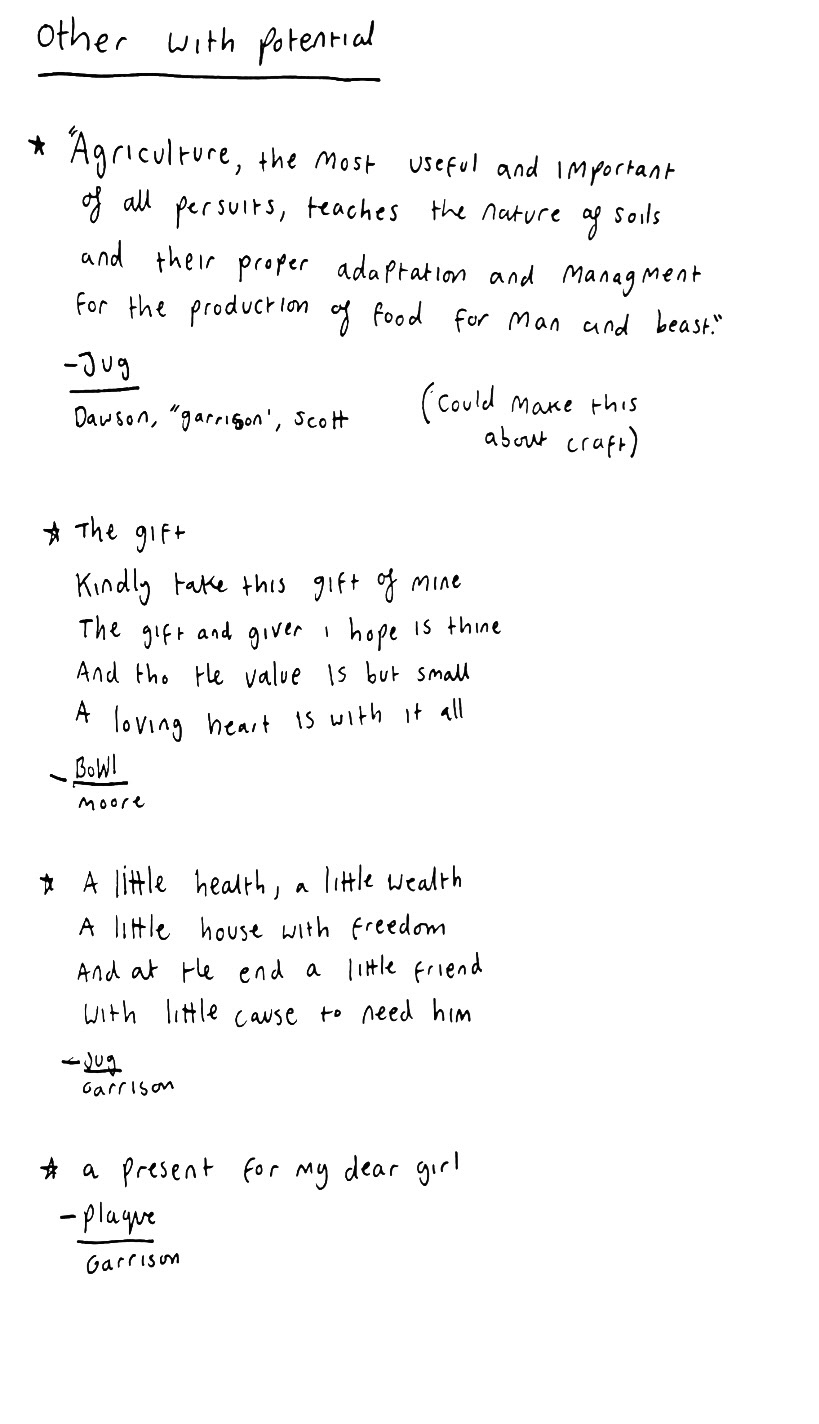 Other with potential
★ "Agriculture, the most useful and important
of all persuits, teaches the nature of soils
and their proper adaptation and managment
for the production of food for man and beast."
- Jug
Dawson, "garrison', Scott
(Could make this
about craft)
★ The gift
Kindly take this gift of mine
The gift and giver i hope is thine
And tho the value is but small
A loving heart is with it all
- Bowl
Moore
★ A little health, a little wealth
A little house with freedom
And at the end a little friend
With little cause to need him
- Jug
Garrison
★ a present for my dear girl
- plaque
Garrison